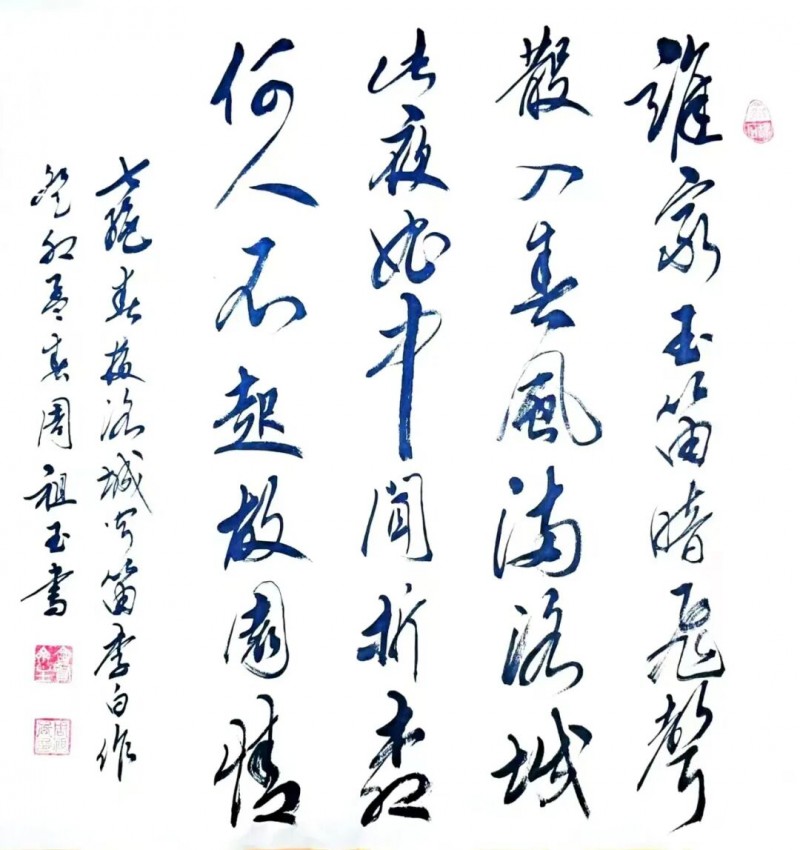 誰家玉笛暗飛聲
散入春風滿洛城
此夜中聞折柳
何人不起故園情
七絕春夜洛城聞笛李白作
癸卯孟春周祖玉書